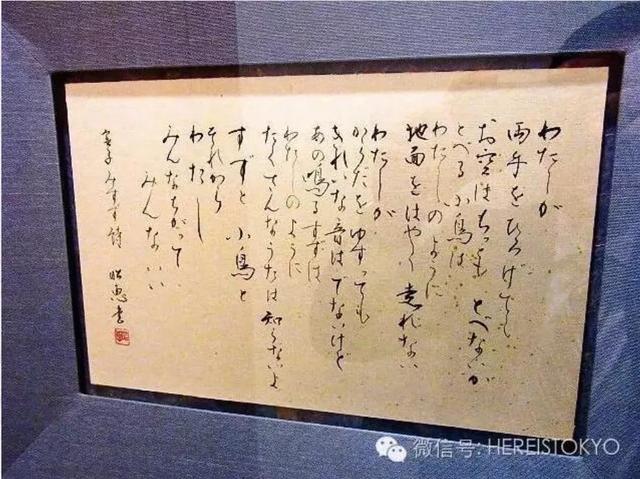 わたしが
両手をひろげても
お空はちっとも とべないが
とべる小鳥は
わたしのように
地面をはやく 走れない
わたしが
からだを ゆすっても
きれいな音は でないけど
あの鳴るすずは
わたしのように
たくさんなうたは 知らないよ
すずと 小鳥と
それから
わたし
みんなちがって
みんないい
金子みすず詩 昭恵書
微信号: HEREISTOKYO